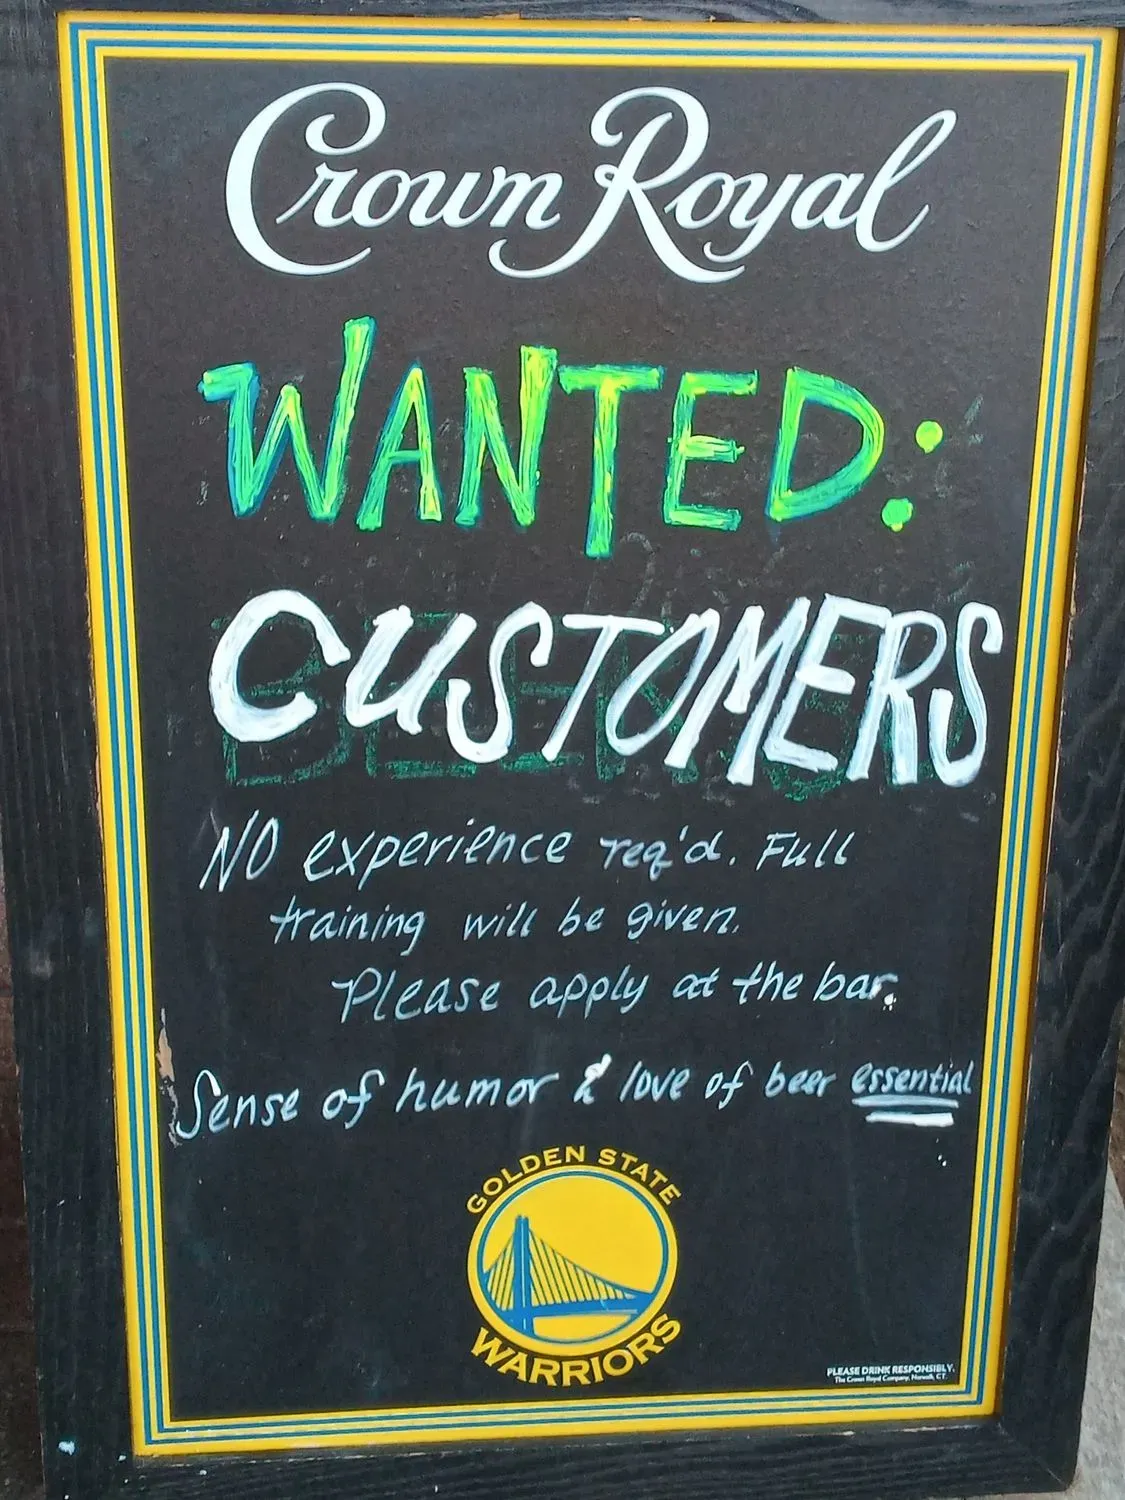 Crown Royal
WANTED:
CUSTOMERS
NO experience req'd. Full
training will be given.
Please apply at the bar.
Sense of humor & love of beer essential
GOLDEN STATE
WARRIORS
PLEASE DRINK RESPONSIBLY.
The Crown Royal Company, Norwalk, CT.